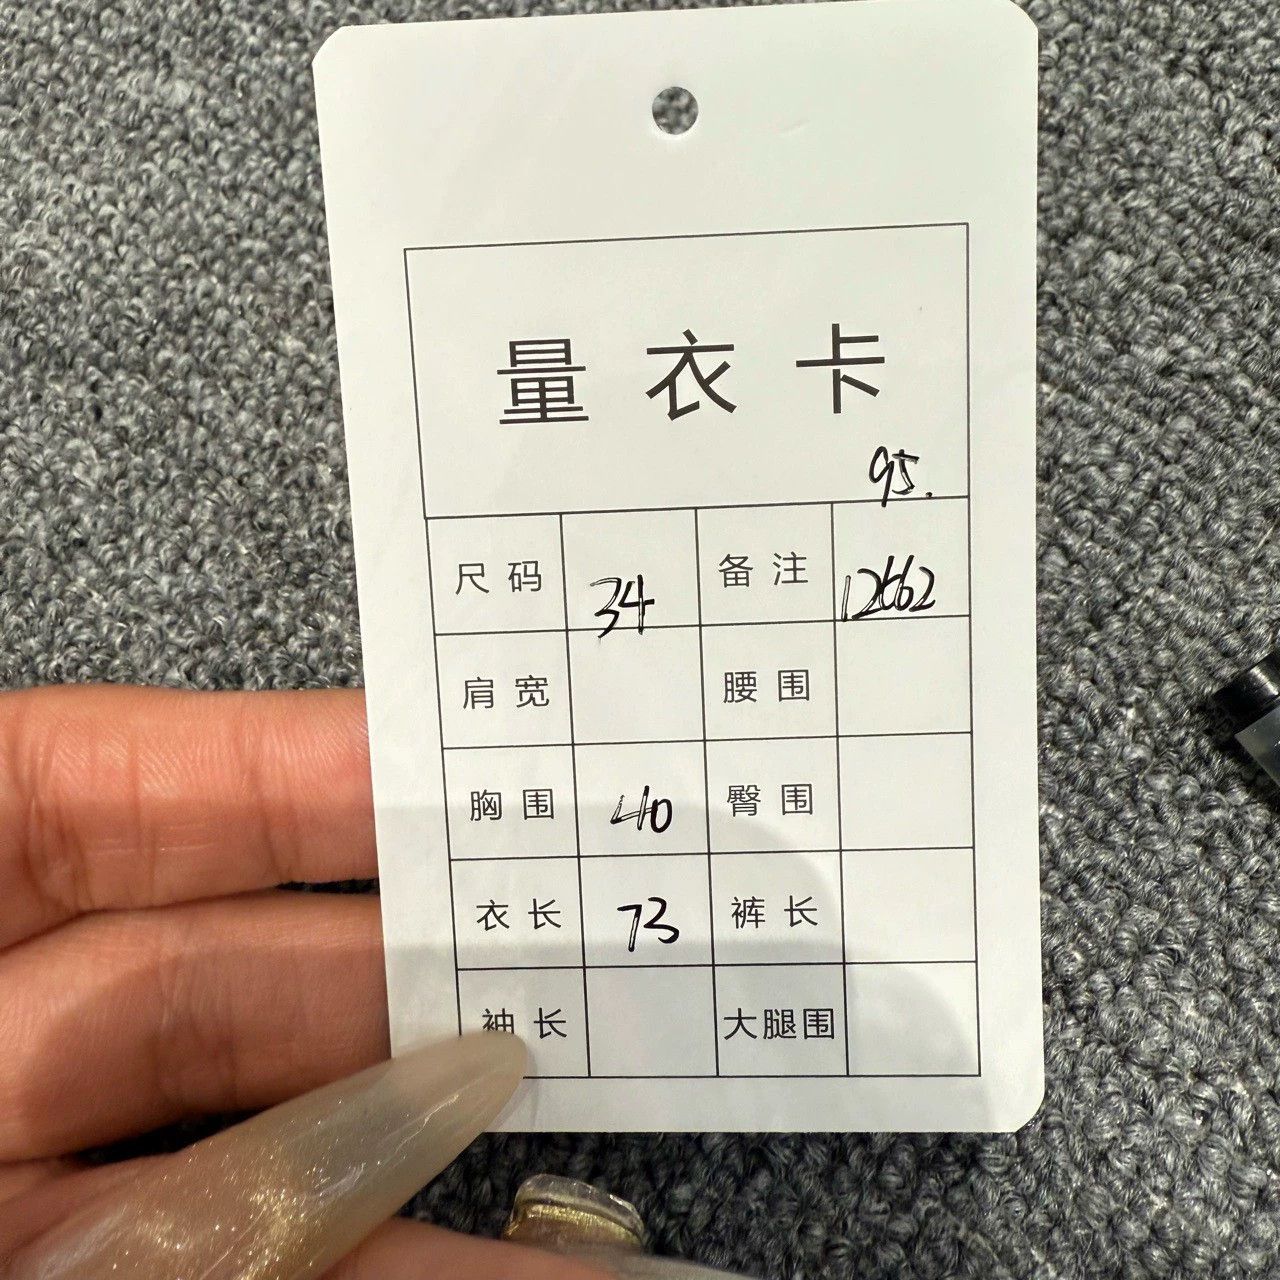 量衣卡
95.
尺码 34 备注 12662
肩宽 腰围
胸围 40 臀围
衣长 73 裤长
袖长 大腿围